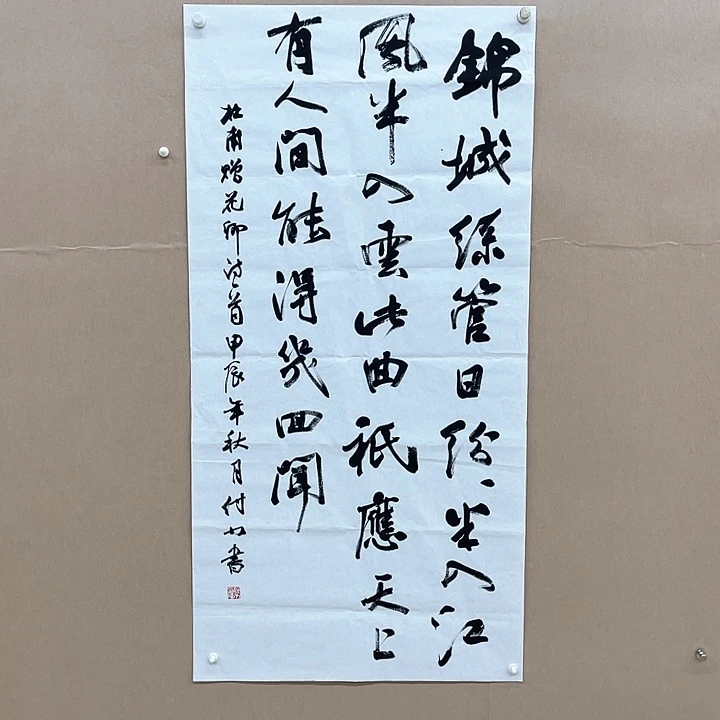 錦城絲管日紛〻半入江
風半入雲此曲祇應天上
有人間能得幾回聞
杜甫贈花卿詩一首甲辰年秋月付書